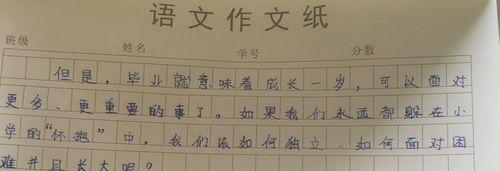 语文作文纸
班级 姓名 学号 分数
但是，毕业就意味着成长一岁，可以面对
更多、更重要的事了。如果我们永远都躲在小
学的“怀抱”中，我们该如何独立、如何面对困
难并且长大呢？